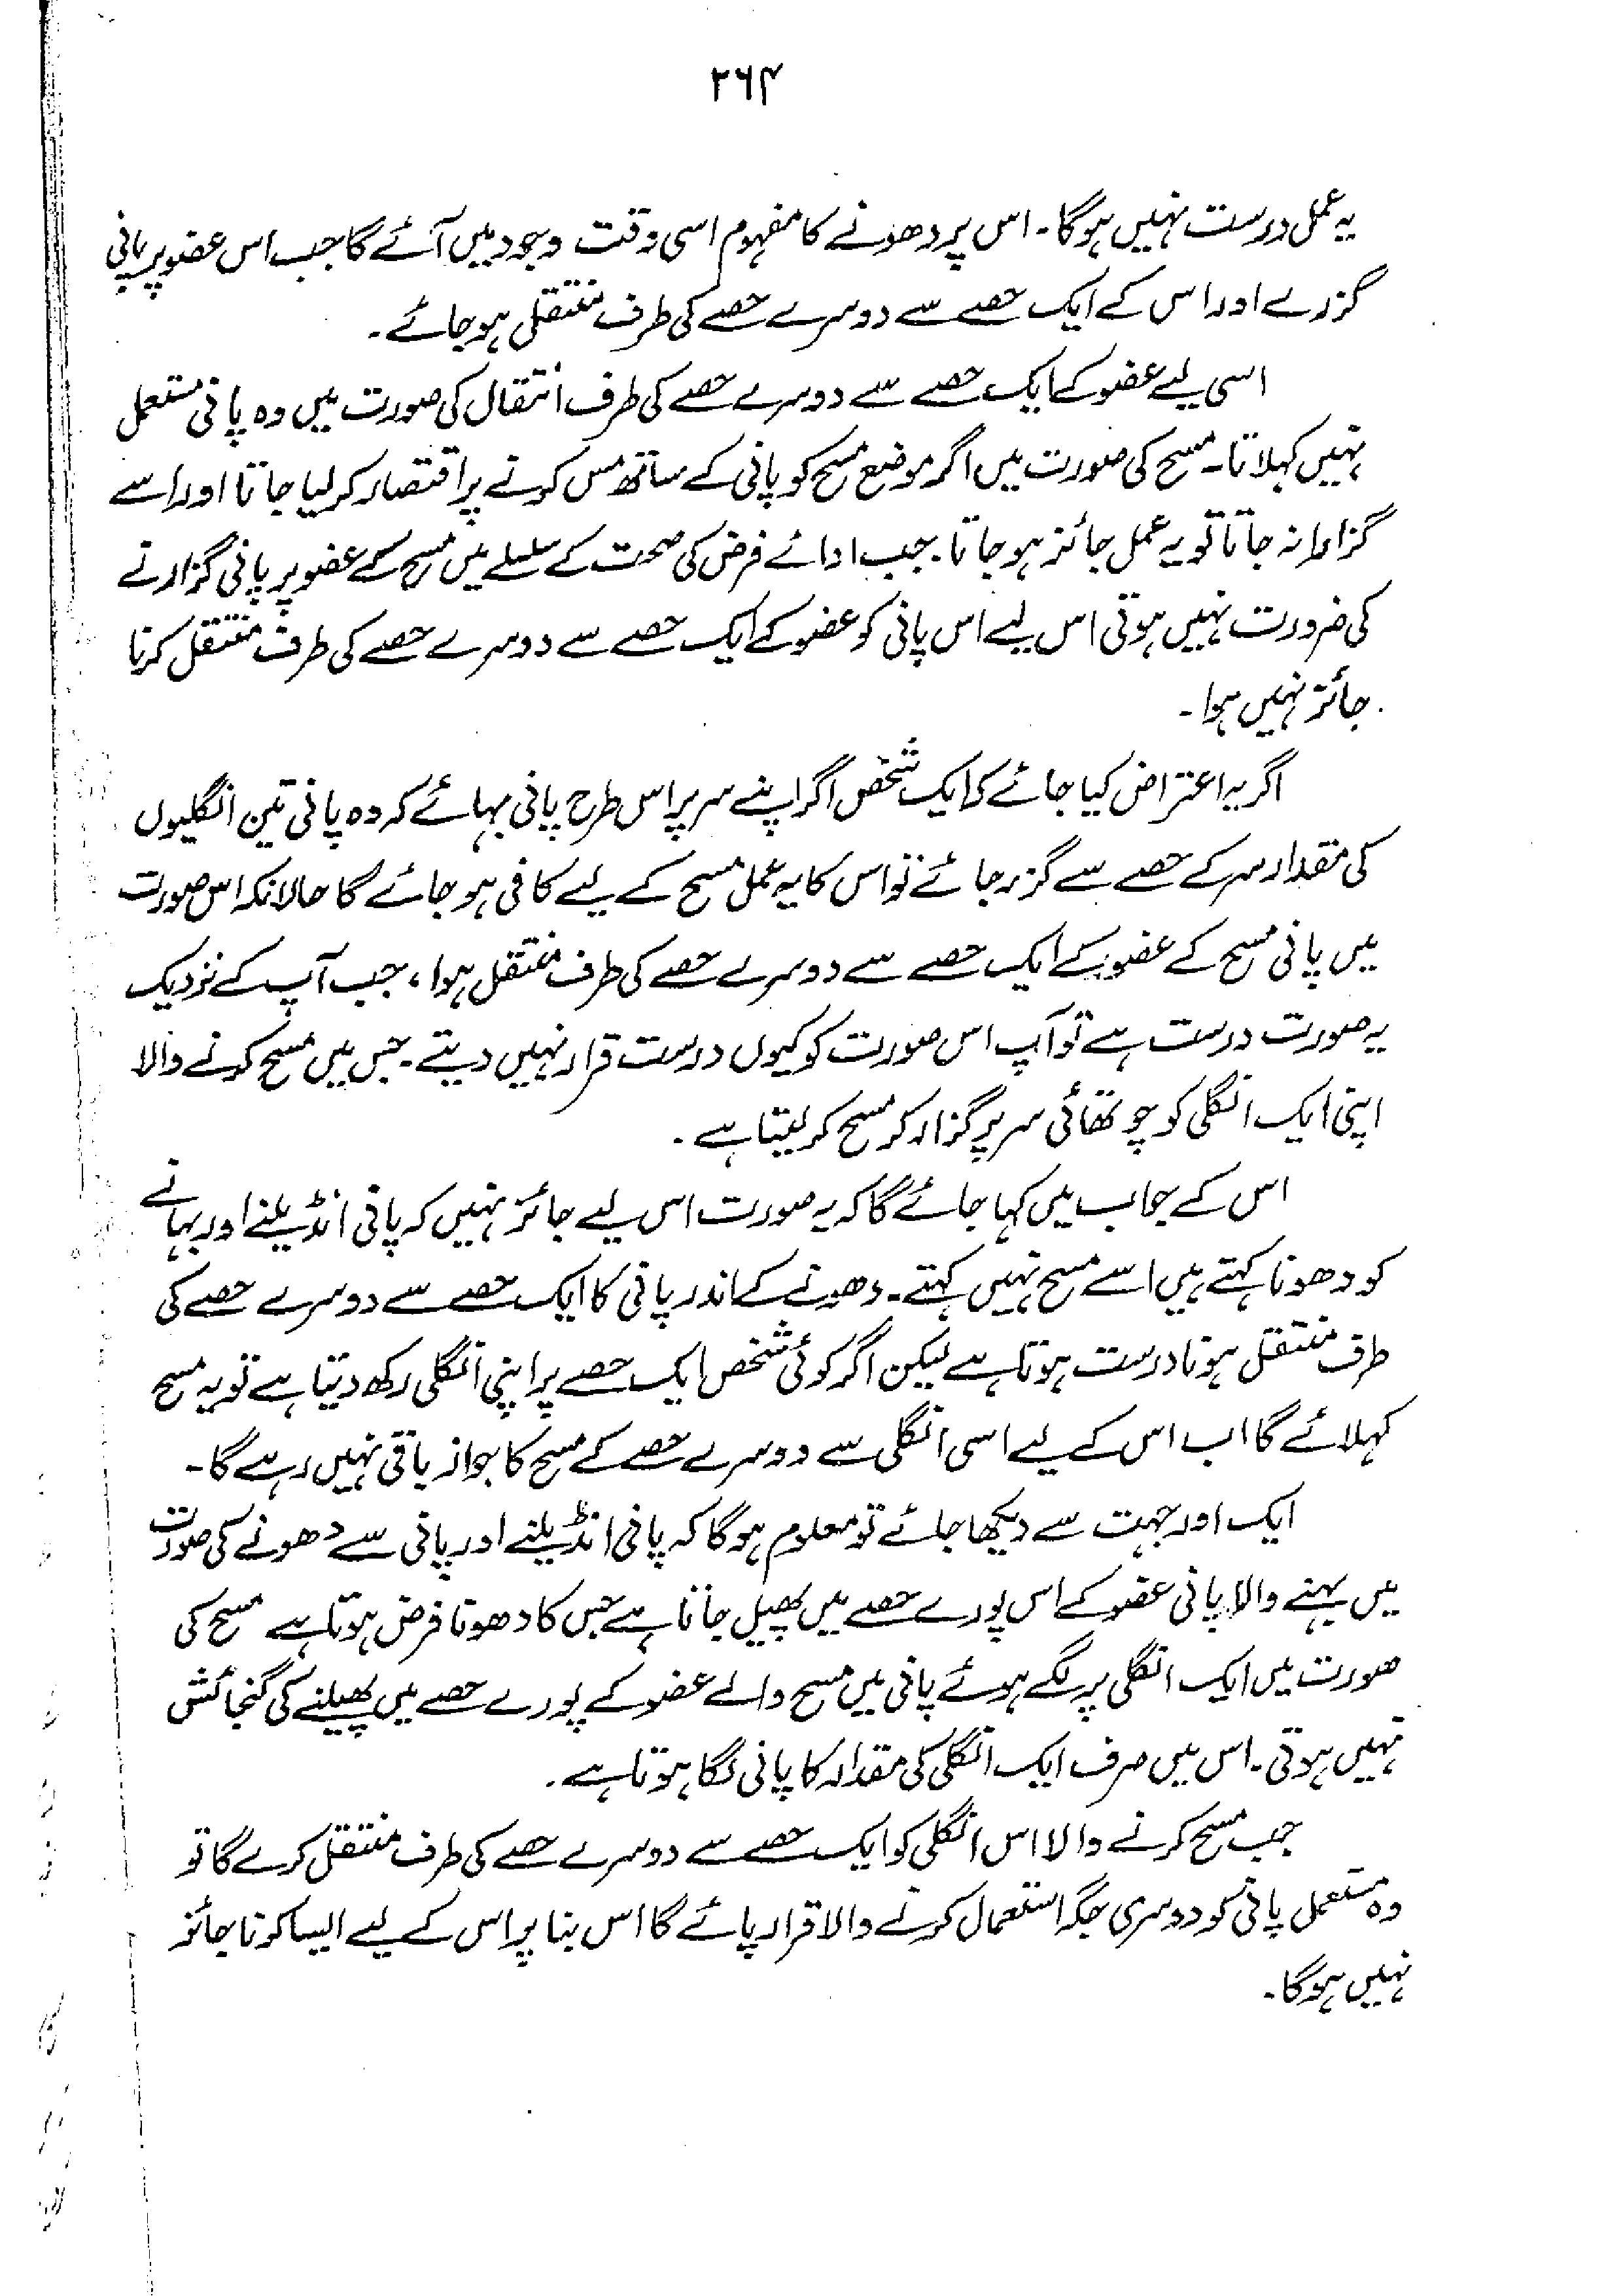 ۲۶۴
یہ عمل درست نہیں ہوگا۔ اس پر دھونے کا مفہوم اسی وقت وجود میں آئے گا جب اس عضو پر پانی
گزرے اور اس کے ایک حصے سے دوسرے حصے کی طرف منتقلی ہو جائے۔
اسی لیے عضو کے ایک حصے سے دوسرے حصے کی طرف انتقال کی صورت میں وہ پانی مستعمل
نہیں کہلاتا۔ مسح کی صورت میں اگر موضع مسح کو پانی کے ساتھ مس کرنے پر اقتصار کر لیا جاتا اور اسے
گزارا نہ جاتا تو یہ عمل جائز ہو جاتا۔ جب ادائے فرض کی صحت کے سلسلے میں مسح کے عضو پر پانی گزارنے
کی ضرورت نہیں ہوتی اس لیے اس پانی کو عضو کے ایک حصے سے دوسرے حصے کی طرف منتقل کرنا
جائز نہیں ہوا۔
اگر یہ اعتراض کیا جائے کہ ایک شخص اگر اپنے سر پر اس طرح پانی بہائے کہ وہ پانی تین انگلیوں
کی مقدار سر کے حصے سے گزر جائے تو اس کا یہ عمل مسح کے لیے کافی ہو جائے گا حالانکہ اس صورت
میں پانی مسح کے عضو کے ایک حصے سے دوسرے حصے کی طرف منتقل ہوا، جب آپ کے نزدیک
یہ صورت درست ہے تو آپ اس صورت کو کیوں درست قرار نہیں دیتے۔ جس میں مسح کرنے والا
اپنی ایک انگلی کو چوتھائی سر پر گزار کر مسح کر لیتا ہے۔
اس کے جواب میں کہا جائے گا کہ یہ صورت اس لیے جائز نہیں کہ پانی انڈیلنے اور بہانے
کو دھونا کہتے ہیں اسے مسح نہیں کہتے۔ دھونے کے اندر پانی کا ایک حصے سے دوسرے حصے کی
طرف منتقل ہونا درست ہوتا ہے لیکن اگر کوئی شخص ایک حصے پر اپنی انگلی رکھ دیتا ہے تو یہ مسح
کہلائے گا اب اس کے لیے اسی انگلی سے دوسرے حصے کے مسح کا جواز باقی نہیں رہے گا۔
ایک اور جہت سے دیکھا جائے تو معلوم ہوگا کہ پانی انڈیلنے اور پانی سے دھونے کی صورت
میں بہنے والا پانی عضو کے اس پورے حصے میں پھیل جاتا ہے جس کا دھونا فرض ہوتا ہے مسح کی
صورت میں ایک انگلی پر لگے ہوئے پانی میں مسح والے عضو کے پورے حصے میں پھیلنے کی گنجائش
نہیں ہوتی۔ اس میں صرف ایک انگلی کی مقدار کا پانی لگا ہوتا ہے۔
جب مسح کرنے والا اس انگلی کو ایک حصے سے دوسرے حصے کی طرف منتقل کرے گا تو
وہ مستعمل پانی کو دوسری جگہ استعمال کرنے والا قرار پائے گا اس بنا پر اس کے لیے ایسا کرنا جائز
نہیں ہوگا۔